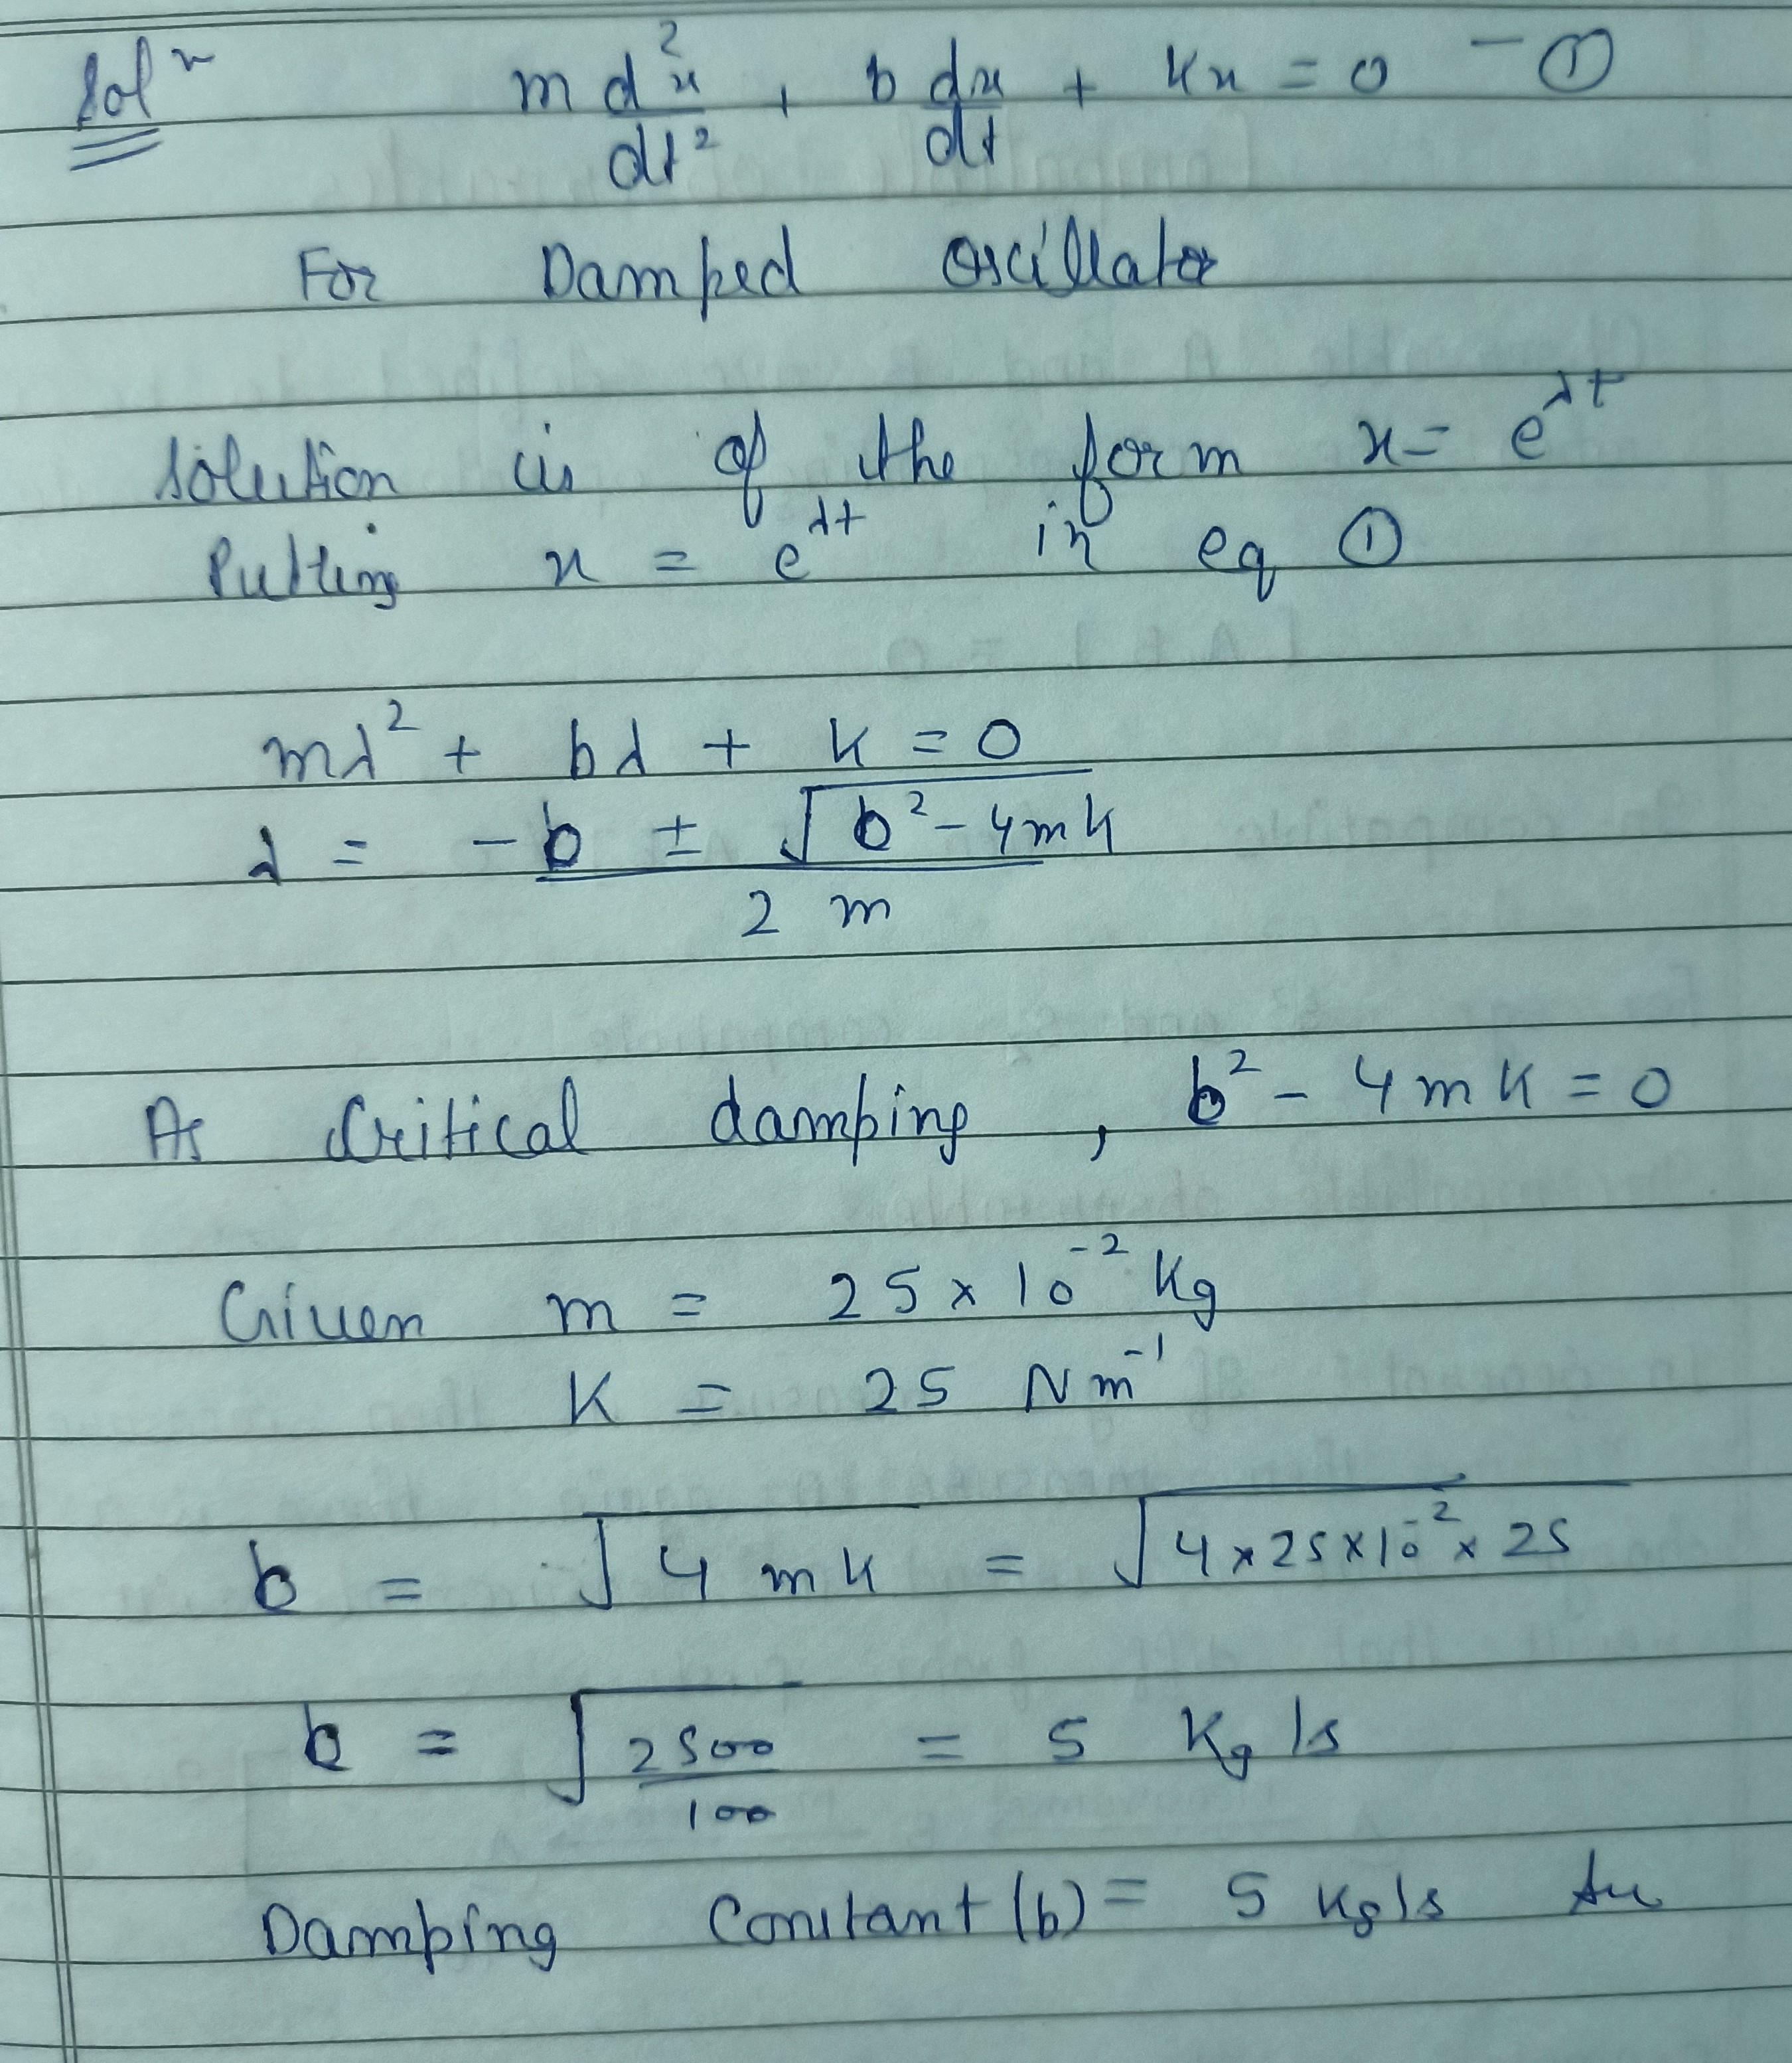 Solⁿ m d²x/dt² + b dx/dt + Kx = 0 - ①
For Damped oscillator
solution is of the form x = e^λt
Putting x = e^λt in eq ①
mλ² + bλ + K = 0
λ = -b ± √(b² - 4mK) / 2m
As Critical damping, b² - 4mK = 0
Given m = 25 × 10⁻² Kg
K = 25 Nm⁻¹
b = √(4mK) = √(4×25×10⁻²×25)
b = √(2500/100) = 5 Kg/s
Damping Constant (b) = 5 Kg/s